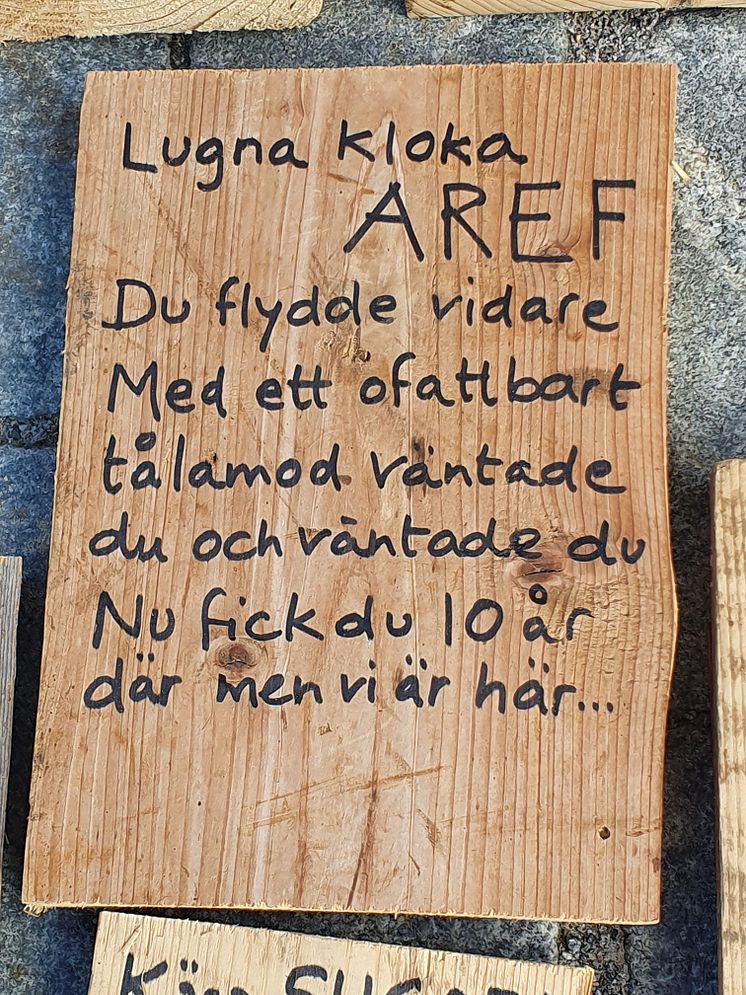 Lugna kloka
AREF
Du flydde vidare
Med ett ofattbart
tålamod väntade
du och väntade du
Nu fick du 10 år
där men vi är här...